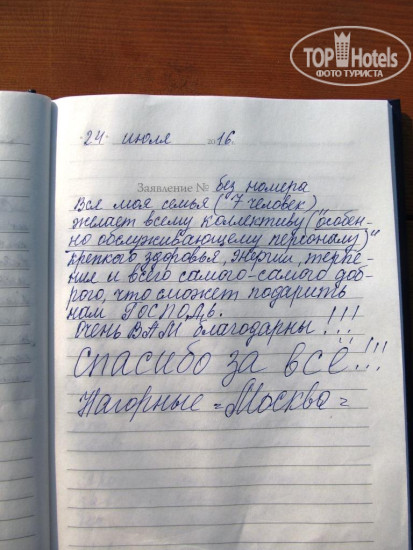 TOP Hotels
ФОТО ТУРИСТА
"24" июля 2016.
Заявление № без номера
Вся моя семья ("7 человек)
желает всему коллективу ("особен-
но обслуживающему персоналу)"
крепкого здоровья, энергии, терпе-
ния и всего самого-самого доб-
рого, что сможет подарить
нам ГОСПОДЬ.
Очень ВАМ благодарны!!!
Спасибо за всё!!!
Нагорные = Москва =